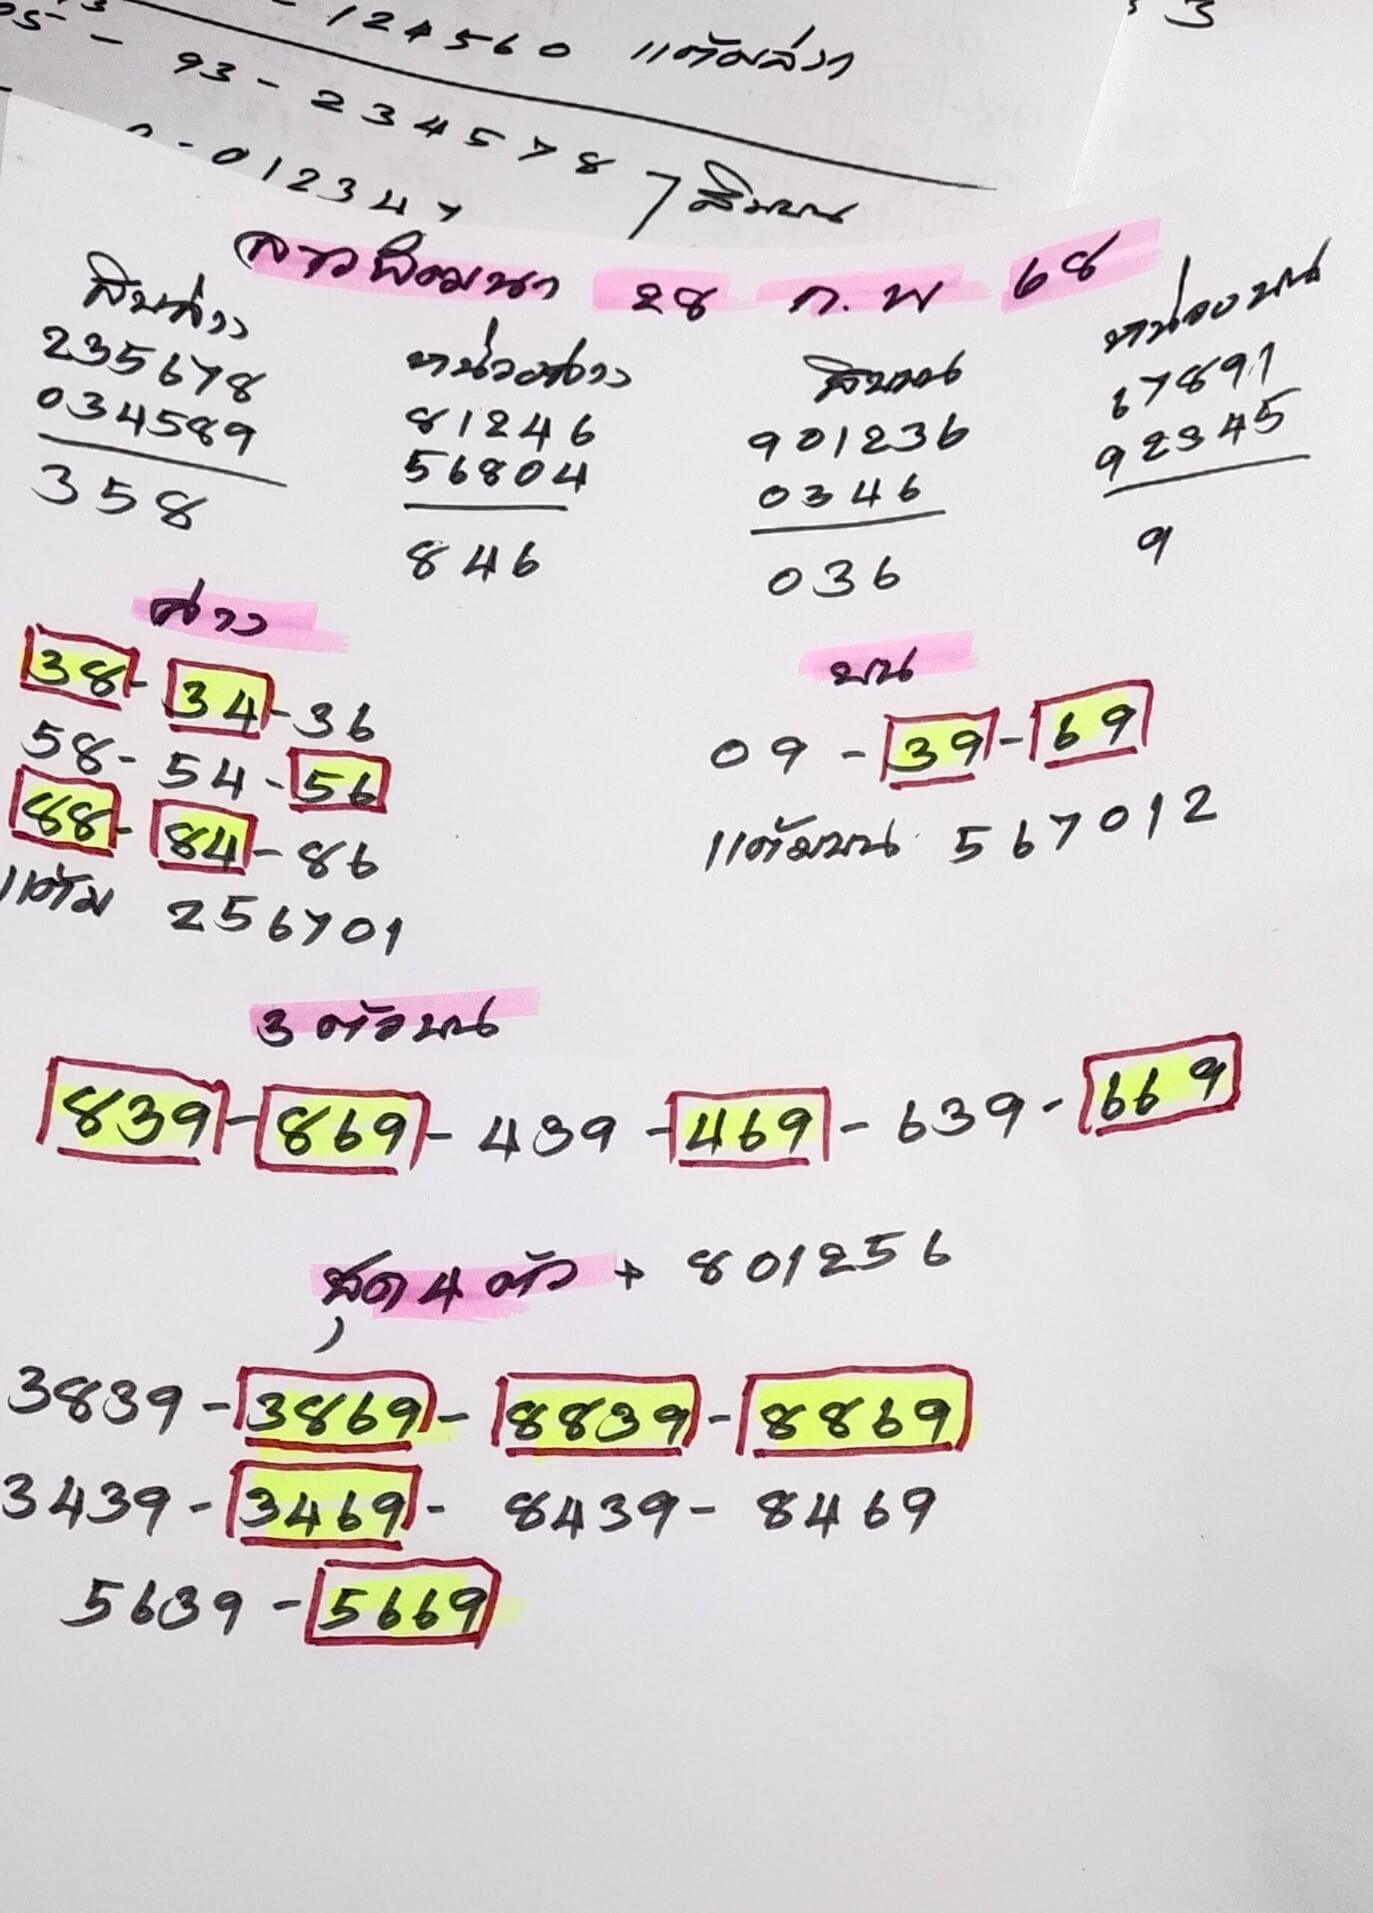 124560 แต้มล่าง
3
93 - 234578
- 012347 7 สิบบน
ลาวพัฒนา 28 ก.พ 68
สิบล่าง
235678
034589
358
หน่วยล่าง
81246
56804
846
สิบบน
901236
0346
036
หน่วยบน
67891
92345
9
ล่าง
38 - 34 - 36
58 - 54 - 56
88 - 84 - 86
แต้ม 256701
บน
09 - 39 - 69
แต้มบน 567012
3 ตัวบน
839 - 869 - 439 - 469 - 639 - 669
ชุด 4 ตัว + 801256
3839 - 3869 - 8839 - 8869
3439 - 3469 - 8439 - 8469
5639 - 5669